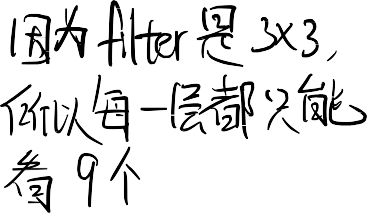 因为filter是3×3,
所以每一层都只能
看9个